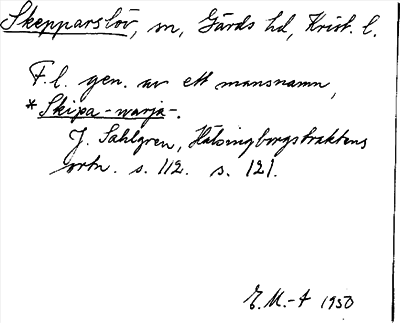 Skepparslöv, sn, Gärds hd, Krist. l.
F.l. gen. av ett mansnamn,
* Skipa-warja-.
J. Sahlgren, Hälsingborgstraktens
ortn. s. 112. s. 121.
E.M.-t 1950